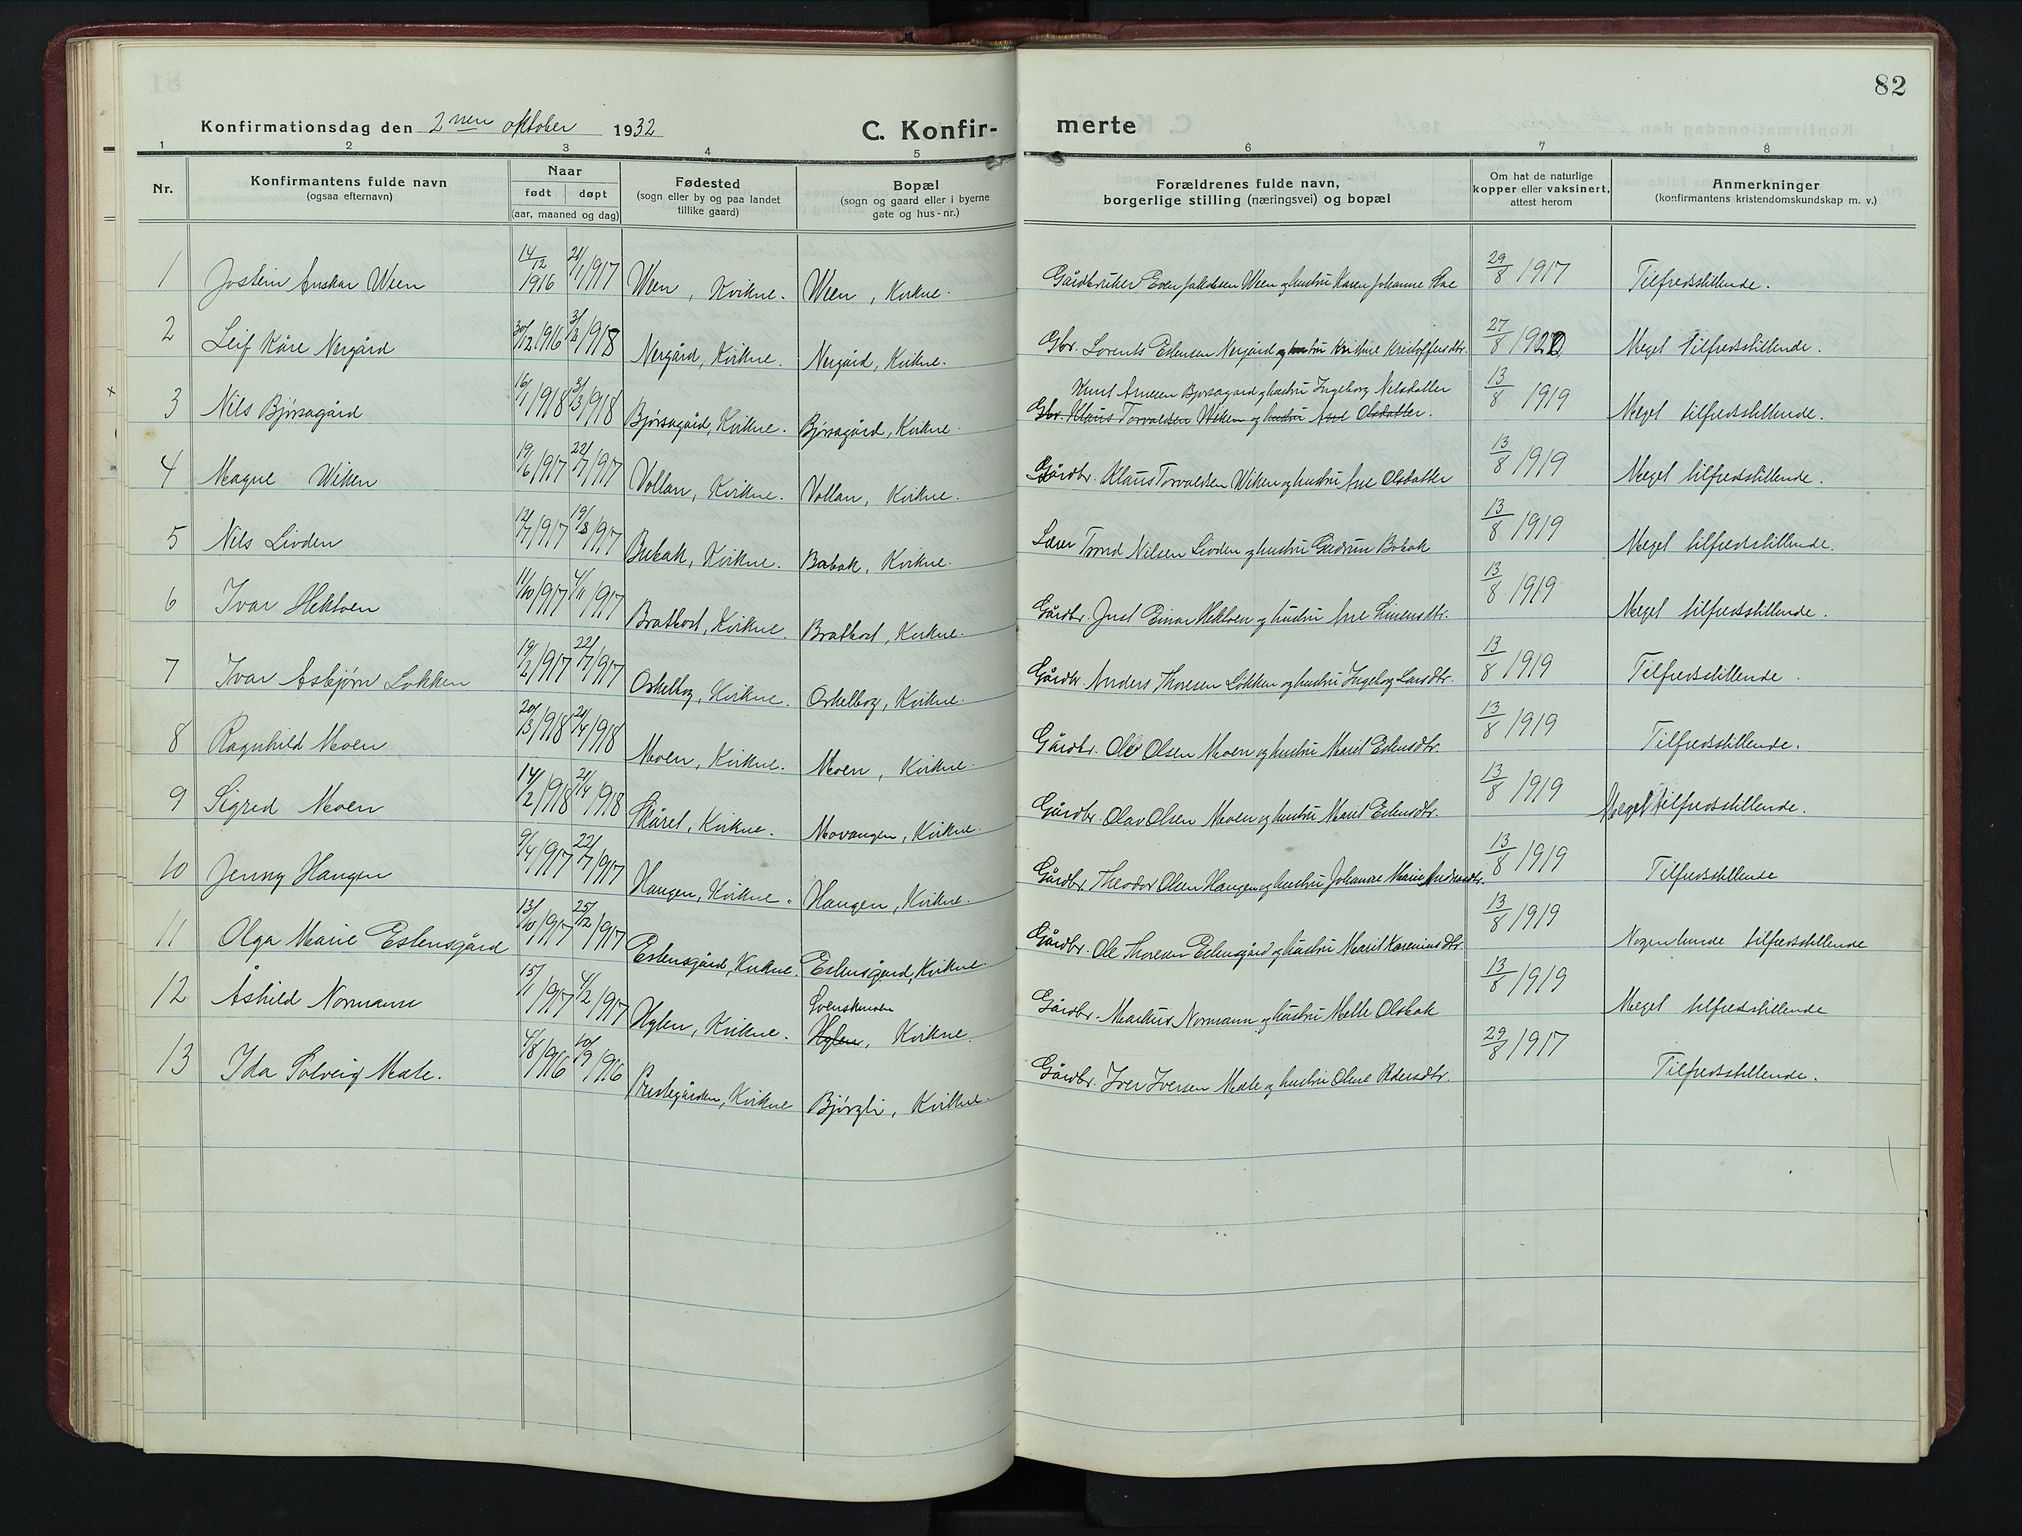 82
Konfirmationsdag den 2nen oktober 1932 C. Konfir- merte
1 2 3 4 5 6 7 8
Nr. Konfirmantens fulde navn (ogsaa efternavn) Naar født døpt (aar, maaned og dag) Fødested (sogn eller by og paa landet tillike gaard) Bopæl (sogn og gaard eller i byerne gate og hus-nr.) Forældrenes fulde navn, borgerlige stilling (næringsvei) og bopæl Om hat de naturlige kopper eller vaksinert, attest herom Anmerkninger (konfirmantens kristendomskundskap m. v.)
1 Jostein Anskar Ween 14/12 1916 21/1 1917 Ween, Kvikne. Ween, Kvikne. Gårdbruker Even Jakobsen Ween og hustru Karen Johanne 29/8 1917 Tilfredsstillende.
2 Leif Kåre Nergård 30/12 1916 31/3 1918 Nergård, Kvikne. Nergård, Kvikne. Gbr. Lorents Estensen Nergård og hustru Kristine Kristoffersdtr. 27/8 Meget tilfredsstillende.
Knut Arnesen Bjørsagård og hustru Ingeborg Nilsdatter
3 Nils Bjørsagård 16/1 1918 31/3 1918 Bjørsagård, Kvikne. Bjørsagård, Kvikne. Gbr. Klaus Torvaldsen Wiken og hustru Ane Olsdatter. 13/8 1919 Meget tilfredsstillende.
4 Magne Wiken 19/6 1917 22/7 1917 Vollan, Kvikne. Vollan, Kvikne. Gårdbr. Klaus Torvaldsen Wiken og hustru Ane Olsdatter 13/8 1919 Meget tilfredsstillende.
5 Nils Livden 12/7 1917 19/8 1917 Bubak, Kvikne. Bubak, Kvikne. Lærer Trond Nilsen Livden og hustru Gudrun Bubak 13/8 1919 Meget tilfredsstillende.
6 Ivar Hektoen 11/10 1917 4/11 1917 Bratbost, Kvikne. Bratbost, Kvikne. Gårdbr. Just Einar Hektoen og hustru Ane Simensdtr. 13/8 1919 Meget tilfredsstillende.
7 Ivar Asbjørn Løkken 19/2 1917 22/7 1917 Oskelbog, Kvikne. Oskelbog, Kvikne. Gårdbr. Anders Thoresen Løkken og hustru Ingeborg Larsdtr. 13/8 1919 Tilfredsstillende.
8 Ragnhild Moen 20/3 1918 21/4 1918 Moen, Kvikne. Moen, Kvikne. Gårdbr. Ole Olsen Moen og hustru Marit Estensdtr. 13/8 1919 Tilfredsstillende.
9 Sigrid Moen 14/2 1918 21/4 1918 Skåret, Kvikne. Movangen, Kvikne. Gårdbr. Olav Olsen Moen og hustru Marit Estensdtr. 13/8 1919 Meget tilfredsstillende.
10 Jenny Haugen 9/4 1917 22/7 1917 Haugen, Kvikne. Haugen, Kvikne. Gårdbr. Theodor Olsen Haugen og hustru Johanne Marie Andreasdtr. 13/8 1919 Tilfredsstillende
11 Olga Marie Estensgård 13/10 1917 25/12 1917 Estensgård, Kvikne. Estensgård, Kvikne. Gårdbr. Ole Thoresen Estensgård og hustru Marit Kareniusdtr. 13/8 1919 Nogenlunde tilfredsstillende
Svenskmoen
12 Åshild Normann 15/1 1917 4/2 1917 Hylen, Kvikne. Hylen, Kvikne. Gårdbr. Markus Normann og hustru Mette Olsbak 13/8 1919 Meget tilfredsstillende
13 Ida Solveig Mæle. 4/8 1916 10/9 1916 Prestegården, Kvikne Bjørgli, Kvikne. Gårdbr. Iver Iversen Mæle og hustru Oline Pedersdtr. 29/8 1917 Tilfredsstillende.